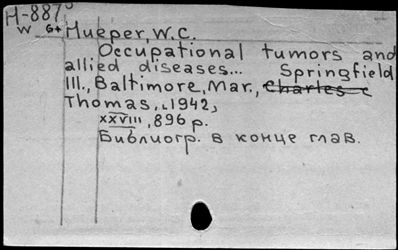 H-8873
W G+
Hueper, W.C.
Occupational tumors and
allied diseases... Springfield
Ill., Baltimore, Mar., Charles C
Thomas, 1942,
XXVIII, 896 p.
Библиогр. в конце глав.